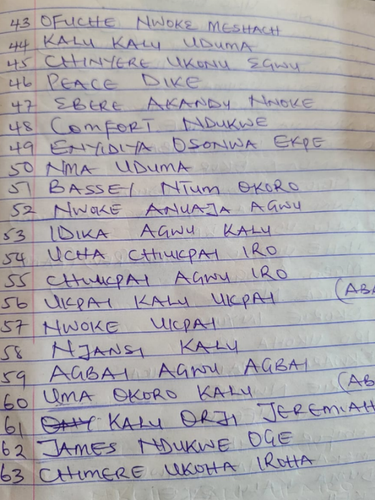 43 OFUCHE NWOKE MESHACH
44 KALU KALU UDUMA
45 CHINYERE UKONU EGWU
46 PEACE DIKE
47 EBERE AKANDU NNOKE
48 COMFORT NDUKWE
49 ENYIDIYA OSONWA EKPE
50 NMA UDUMA
51 BASSEI NTUM OKORO
52 NWOKE ANUAJA AGWU
53 IDIKA AGWU KALU
54 UCHA CHIUKPAI IRO
55 CHIUKPAI AGWU IRO
56 UKPAI KALU UKPAI (ABA
57 NWOKE UKPAI
58 NJANSI KALU
59 AGBAI AGWU AGBAI
60 UMA OKORO KALU (AB
61 KALU ORJI JEREMIAH
62 JAMES NDUKWE OGE
63 CHIMERE UKOHA IROHA